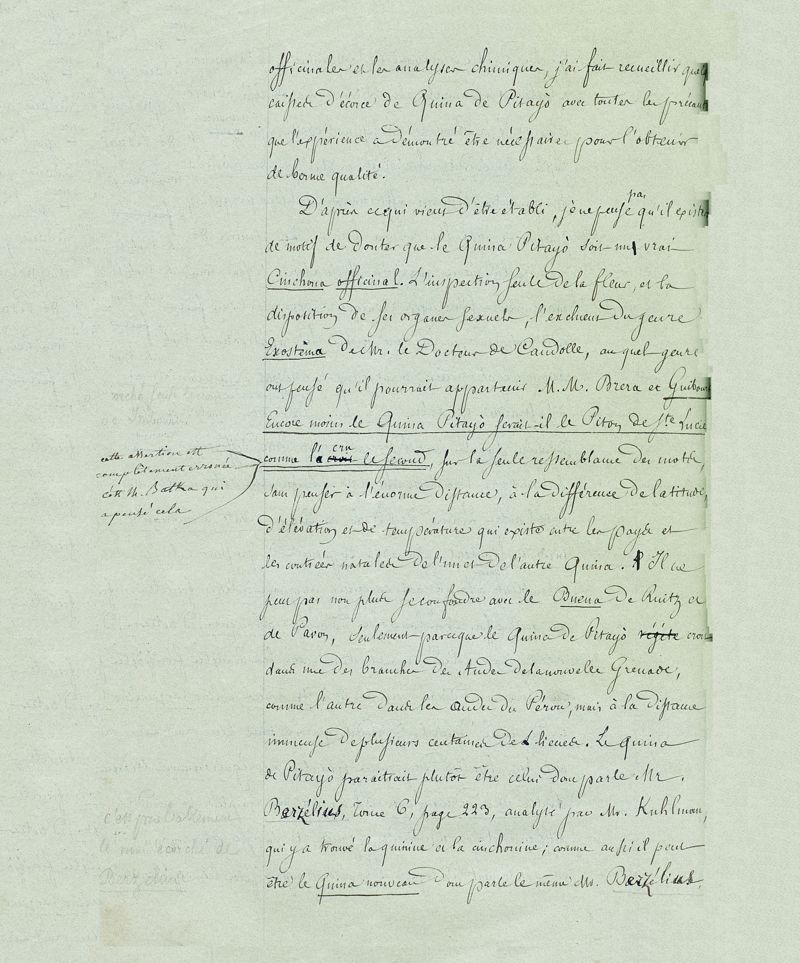 officinales et les analyses chimiques, j'ai fait recueillir quel
caisses d'écorce de Quina de Pitayò avec toutes les précau
que l'expérience a démontré être nécessaires pour l'obtenir
de bonne qualité.
D'après ce qui vient d'être établi, je ne pense pas qu'il existe
de motif de douter que le Quina Pitayò soit un vrai
Cinchona officinal. L'inspection seule de la fleur, et la
disposition de ses organes sexuels, l'excluent du genre
Exostèma de Mr. le Docteur de Candolle, auquel genre
ont pensé qu'il pourrait appartenir M.M. Brera et Guibour
Encore moins le Quina Pitayò serait-il le Piton de Ste Lucie
comme l'a cru le second, sur la seule ressemblance des mots,
sans penser à l'énorme distance, à la différence de latitude,
d'élévation et de température qui existe entre les pays et
les contrées natales de l'un et de l'autre Quina. Il ne
peut pas non plus se confondre avec le Buena de Ruitz et
de Pavon, seulement parceque le Quina de Pitayò végète croit
dans une des branches des Andes de la nouvelle Grenade,
comme l'autre dans les Andes du Pérou, mais à la distance
immense de plusieurs centaines de lieues. Le quina
de Pitayò paraitrait plutôt être celui dont parle Mr.
Berzélius, Tome 6, page 223, analysé par Mr. Kuhlman,
qui y a trouvé la quinine et la cinchonine; comme aussi il peut
être le Quina nouveau dont parle le même Mr. Berzélius.
cette assertion est
complètement erronée
c'est M. Batka qui
a pensé cela
c'est probablement
le
Berzélius